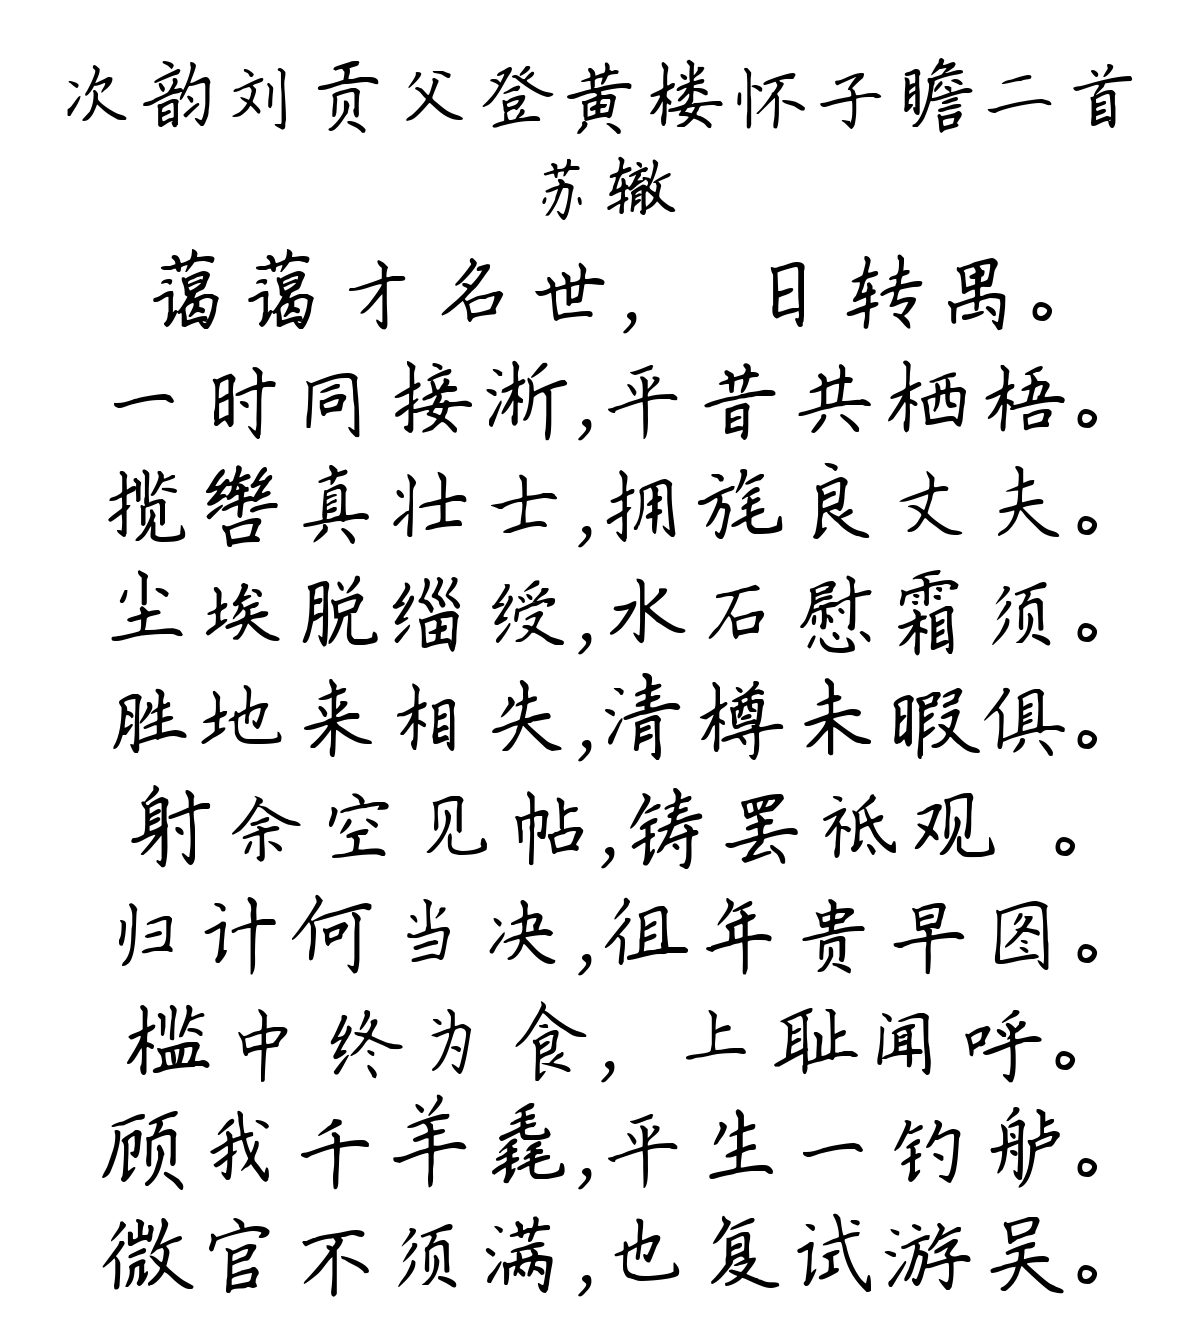 次韵刘贡父登黄楼怀子瞻二首
苏辙
蔼蔼才名世， 日转禺。
一时同接淅,平昔共栖梧。
揽辔真壮士,拥旄良丈夫。
尘埃脱缁绶,水石慰霜须。
胜地来相失,清樽未暇俱。
射余空见帖,铸罢祗观 。
归计何当决,徂年贵早图。
槛中终为食，上耻闻呼。
顾我千羊毳,平生一钓舻。
微官不须满,也复试游吴。